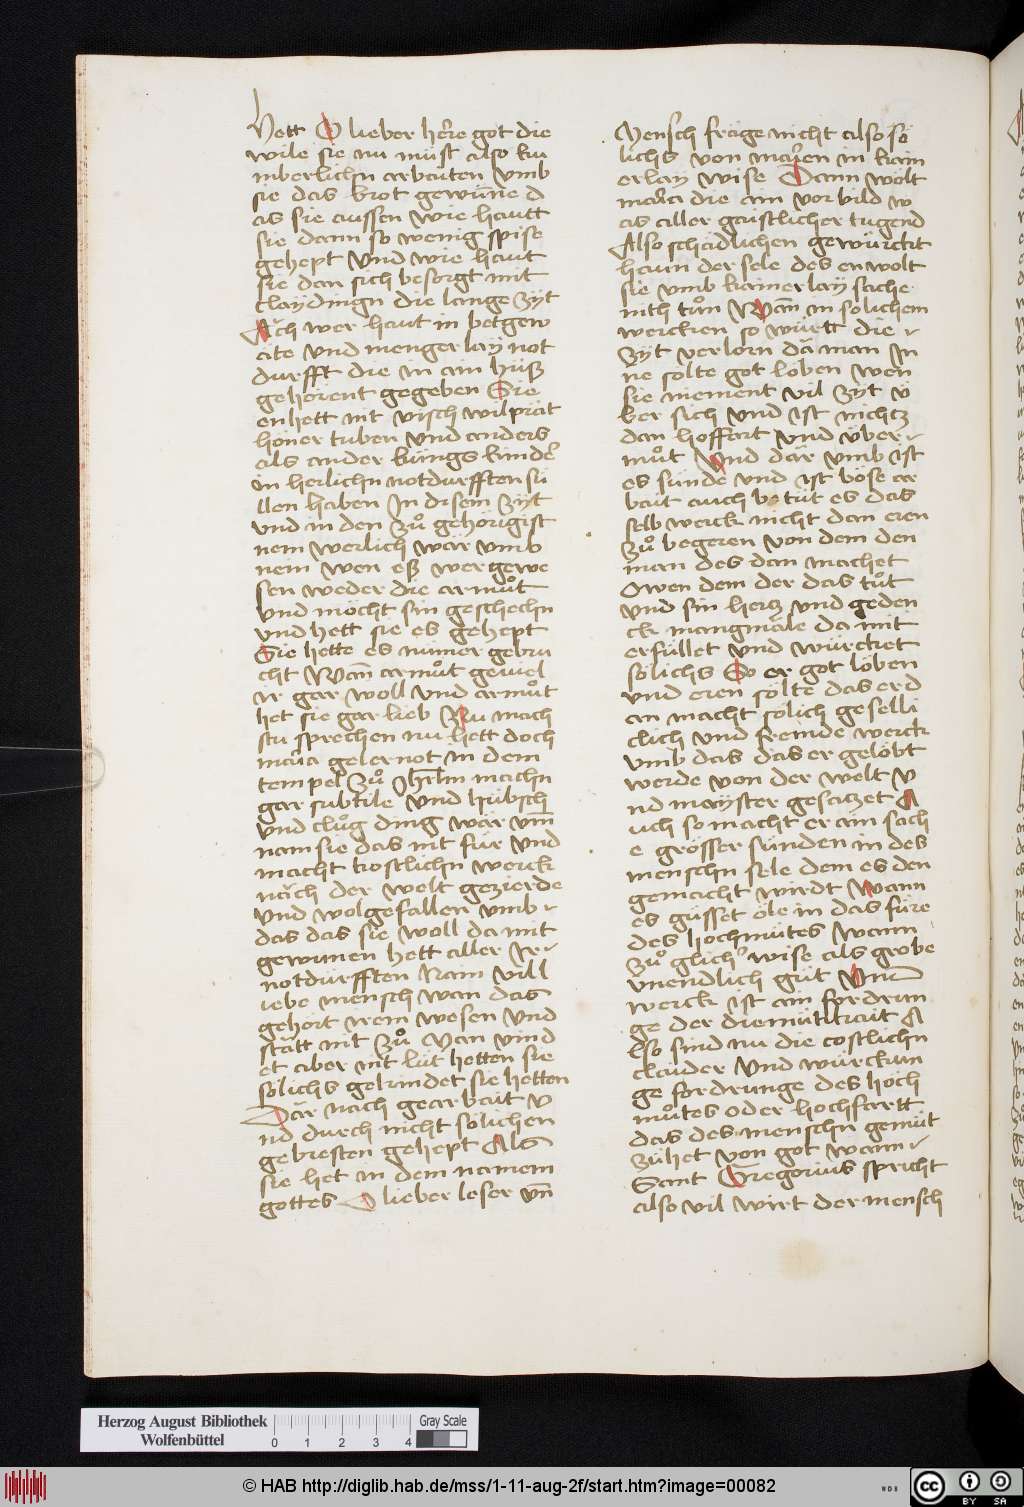 Hett O lieber her̃e got die
wile sie nu müst also ku
mberlichn arbaiten vmb
sie das brot gewũne d
as sie aussen wie hautt
sie dann so wenig spise
gehept vnd wie haut
sie dan sich besorgt mit
claydingn die lange zyt
Ach wer haut in betgew
ate vnd mengerlay not
durfft die in ain hüß
gehörent gegeben Sie
enhett nit visch wilprät
höner tuben vnd anders
als ander küngs kinder
in herlichn notdurfften sü
llen haben In disem zyt
vnd in den zů gehörigist
nem werlich wär vmb
nem wen eß wer gewe
sen weder die armůt
vnd möcht sin geschechn
vnd hett sie es gehept
Sie hette es nimer gebru
cht Wañ armůt geuiel
ir gar woll vnd armůt
het sie gar lieb Nu mach
stu sprechen nu hett doch
maria gelernot in dem
tempel zů Jhrlm machn
gar subtile vnd hübsch
vnd clůg ding wär vm̃
nam sie das nit für vnd
macht kostlichn werck
näch der welt gezierde
vnd wolgefallen vmb
das das sie woll da mit
gewunen hett aller ir
notdürfften Nain vill
iebe mensch wan das
gehört irem wesen vnd
stätt nit zů Man vind
et aber nit lüt hetten sie
sölichs gekindet sie hetten
Där nach gearbait v
nd durch nicht sölichen
gebresten gehept Als
sie het in dem namem
gottes O lieber leser vñ
Mensch fräge nicht also sö
lichs von marien in kain
erlay wise Dann wolt
maria die ain vorbild w
as aller gaistlicher tugend
Also schädlichen gewürckt
haun der sele des enwolt
sie vmb kainerlay sache
nith tůn Wañ in solichem
wercken so württ die
zyt verlorn dä man in
ne solte got loben wen
sie niement vil zyt ü
ber sich vnd ist nichtz
dan hoffart vnd über
můt Vnd där vmb ist
es sünde vnd ist böse ar
bait auch bütüt es das
selb werck nicht dan eren
zů begeren von dem den
man des dan machet
Owen dem der das tůt
vnd sin hertz vnd geden
ck mangmäle da mit
erfüllet vnd würcket
sölichs So er got löben
vnd eren sölte das er d
an macht sölich geselli
clich vnd fremde werck
vmb das das er gelobt
werde von der welt v
nd mayster gesatzet A
uch so macht er ain sach
e grösser sünden in des
menschn sele dem es den
gemacht wirdt Wann
es güsset öle in das füre
des hochmütes Wann
zů glichr wise als grobe
vnendlich güt vnd
werck ist ain fordrun
ge der diemüttikait A
lso sind nu die costlichn
claider vnd würckun
ge fordrunge des hoch
můtes oder hochfartt
das des menschn gemüt
zühet von got wann
Sant Gregorius spricht
also vil wirt der mensch
Herzog August Bibliothek
Wolfenbüttel
0 1 2 3 4
Gray Scale
© HAB http://diglib.hab.de/mss/1-11-aug-2f/start.htm?image=00082
cc BY SA